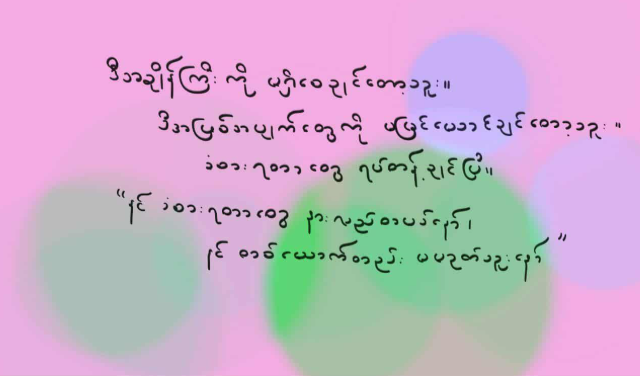 ဒီအချိန်ကြီး ကို မရှိစေချင်တော့ဘူး။
ဒီအဖြစ်အပျက်တွေကို မမြင်ယောင်ချင်တော့ဘူး။
ခံစားရတာတွေ ရပ်တန့်ချင်ပြီ။
"နင် ခံစားရတာတွေ နားလည်တာပဲနော်၊
နင် တစ်ယောက်တည်း မဟုတ်ဘူးနော်"